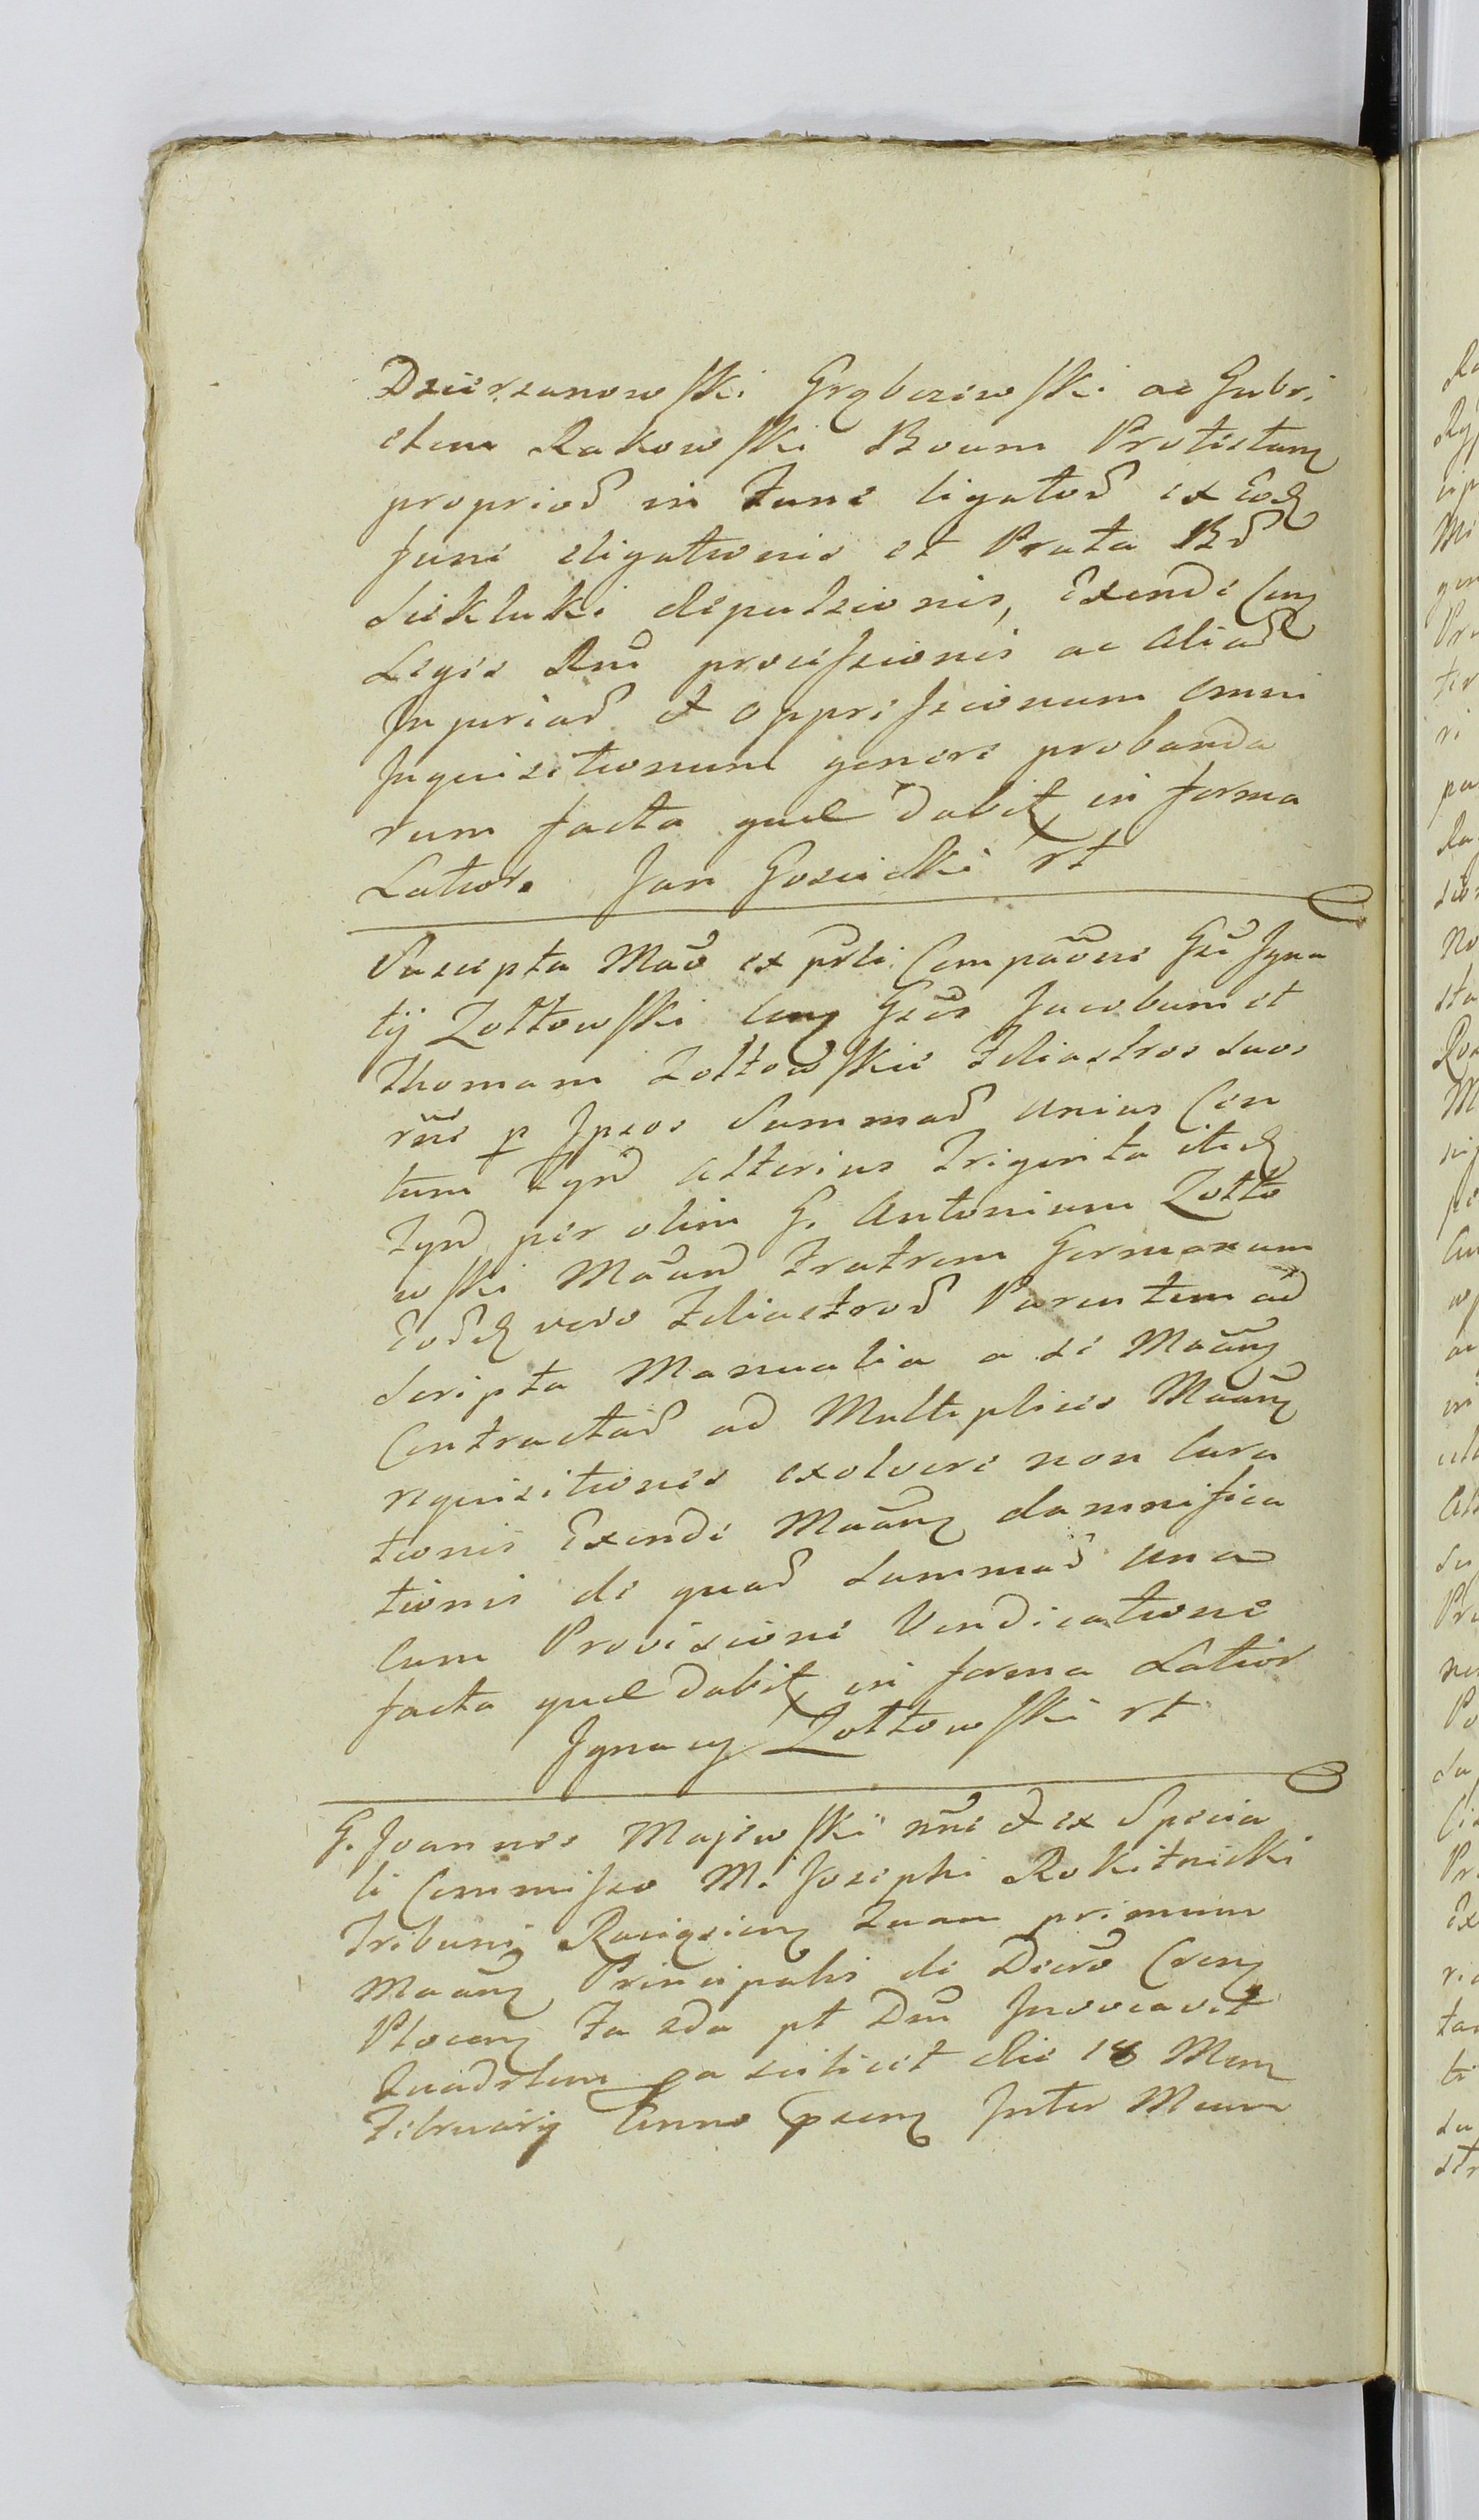 Dzierzanowski Grąbczewski ac Gabri
elem Rakowski Boum Protestam
propriod in Fune ligatod ex Eod
fune eligationis et Prata Bd
Siekluki depulsionis, Exende Cum
Legis Rni processionis ac Aliad
Injuriad et oppressionum omni
Inquisitionum genere probanda
rum facta quæ dabit in forma
Latior. Jan Gosicki rt
Suscepta Mão ex psli Compãone Gsi Igna
tij Zołtowski Cum Gsos Jacobum et
Thomam Zołtowskie Filiastros suos
rñe p Ipsos Summad Unius Cen
tum Tynf Alterius Triginta itid
Tynf per olim G. Antonium Zołto
wski Mãand Fratrem Germanum
Eosd vero Filiastrod Parentem ad
Scripta Manualia a se Mãam
Contractad ad Multiplices Mãam
requisitiones exolvere non Cura
tionis Exende Mãam damnifica
tionis de quad summad una
Cum Provisione Vendicatione
facta quæ dabit in forma Latior
Ignacy Zołtowski rt
G. Joannes Majewski nñe et ex Specia
li Commisso M. Josephi Rokitnicki
Tribuni Raciąziem Quam primum
Mãam Principalis de Decro Crem
Plocem Fa 2da pt Dni Invocavit
Quadrlem pa scilicet die 18 Mem
Februarij Anno psem Inter Meum